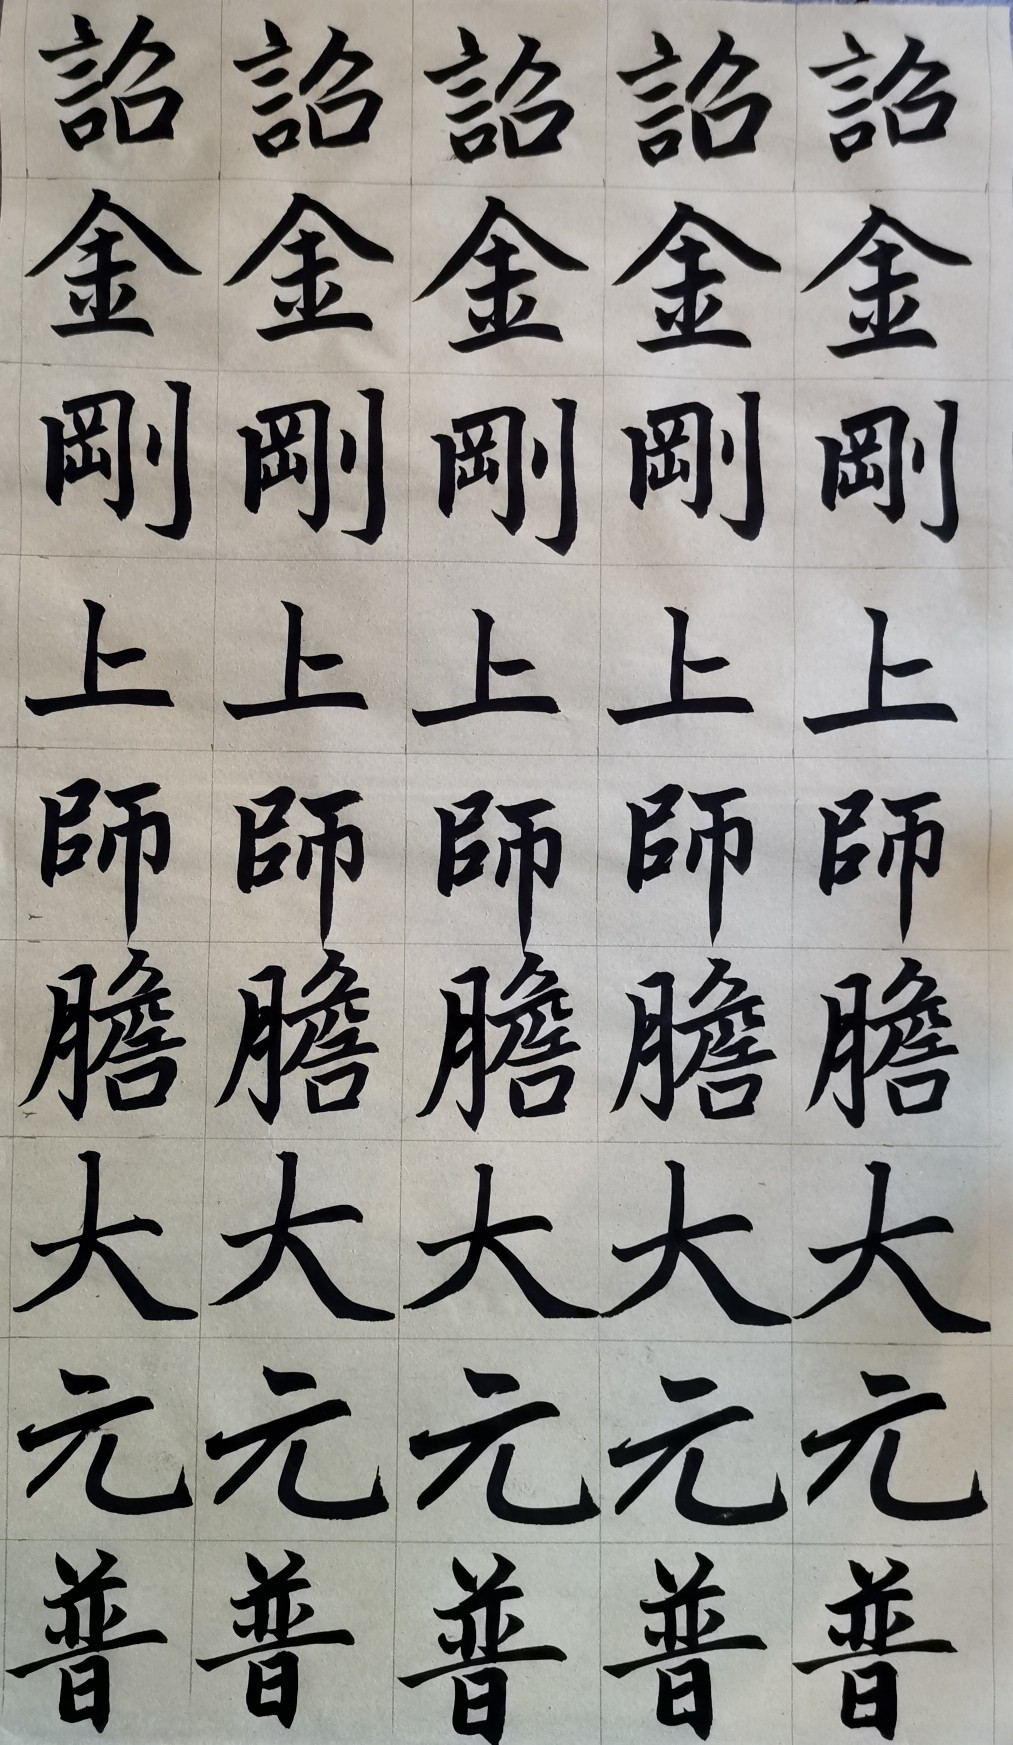 詔詔詔詔詔
金金金金金
剛剛剛剛剛
上上上上上
師師師師師
膽膽膽膽膽
大大大大大
元元元元元
普普普普普